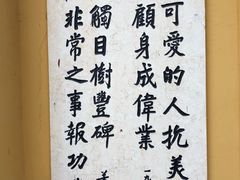 可愛的人抗美
顧身成偉業
一
觸目樹豐碑
非常之事報功